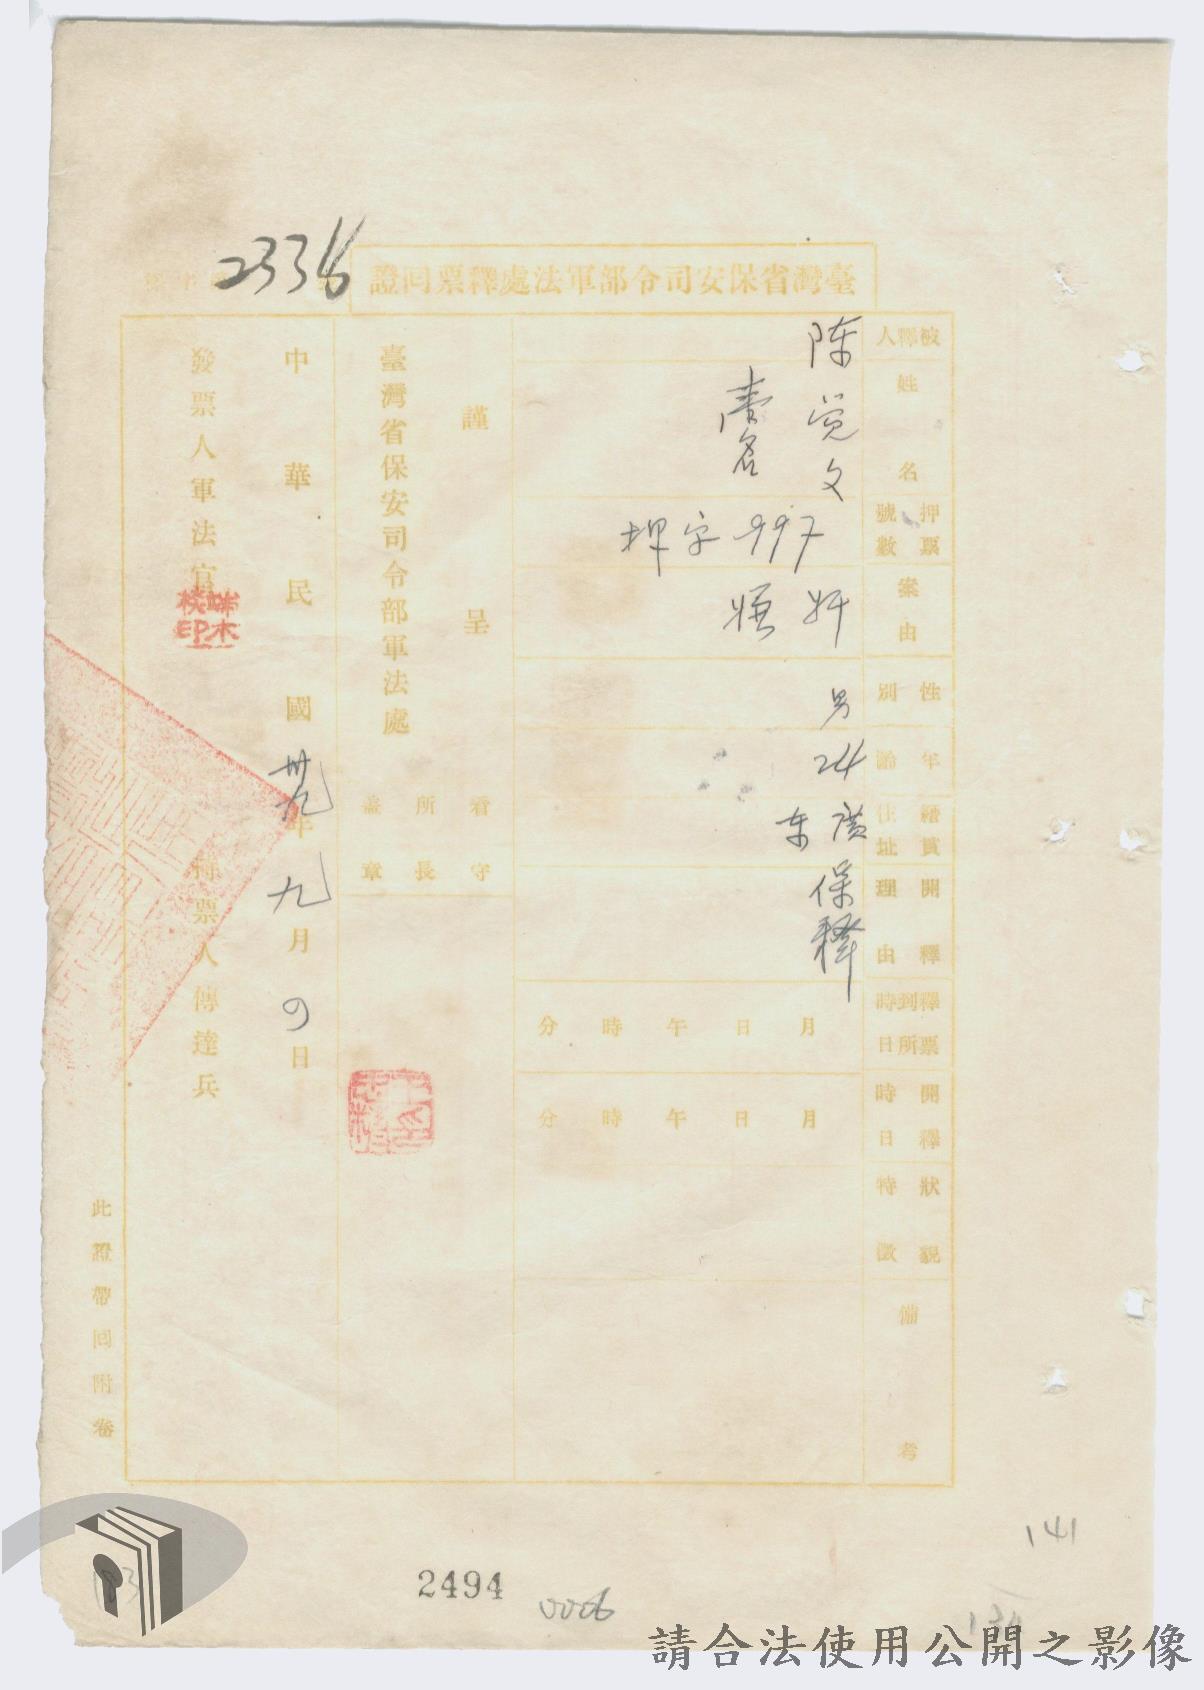 臺灣省保安司令部軍法處釋票回證
2336
被釋人姓名
陈觉文
壹名
押票號數
押字997
案由
奸嫌
性別
男
年齡
24
籍貫住址
廣东
開釋理由
保釋
釋票到所時日
月 日 午 時 分
開釋時日
月 日 午 時 分
狀貌特徵
備考
謹呈
臺灣省保安司令部軍法處
看守所長蓋章
中華民國卅九年九月 日
發票人軍法官
端木棪印
持票人傳達兵
此證帶回附卷
141
2494
0006
134
請合法使用公開之影像